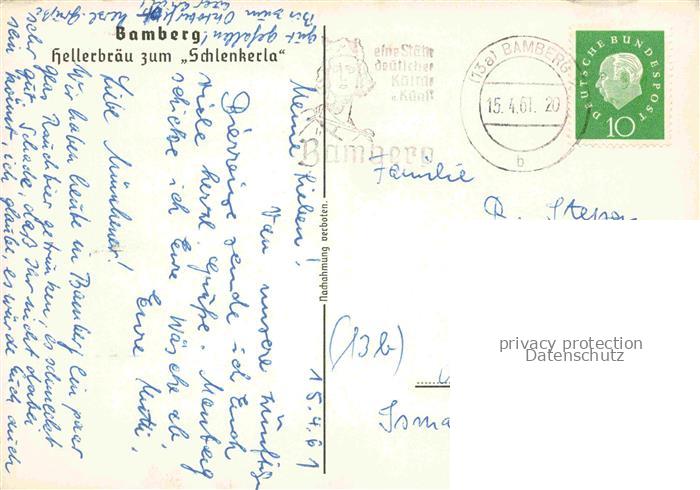 Bamberg
Hellerbräu zum „Schlenkerla"
15.4.61
Meine Lieben!
Von unsere zünftigen
Bierreise sende ich Euch
viele herzl. Grüße. Montag
schicke ich Eure Wäsche ab.
Eure Mutti.
Liebe Münchener!
Wir haben heute in Bamberg ein paar
Glas Rauchbier getrunken, es schmeckt
sehr gut. Schade, daß Ihr nicht dabei
sein könnt, ich glaube, es würde Euch auch
gut gefallen!
Bis zum herzl. Grüße
Nachahmung verboten.
eine Stätte
deutscher
Kunst
Bamberg
(13a) BAMBERG
15.4.61. 20
b
DEUTSCHE BUNDESPOST
10
Familie
(13b)
Isma
privacy protection
Datenschutz